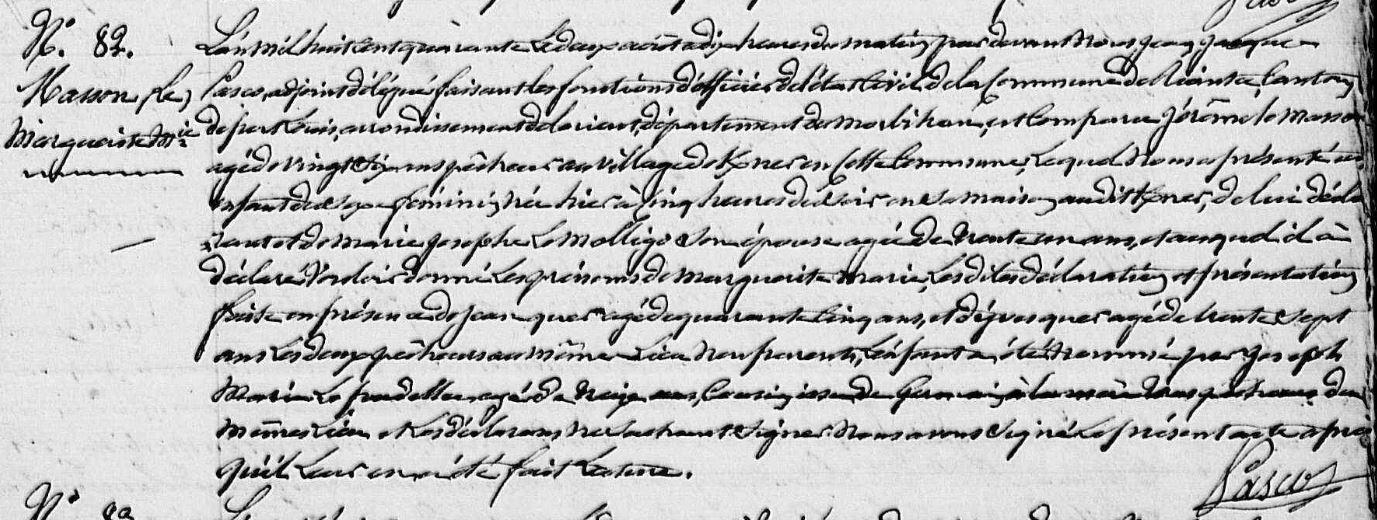 N.° 82.
Masson (Le)
Marguerite M.ie
L'an mil huit cent quarante Le deux août à dix heures du matin, par devant Nous Jean Jacques
Pasco, adjoint délégué faisant les fonctions d'officier de l'état civil de la Commune de Riantec, Canton
de port Louis, arrondissement de Lorient, département du Morbihan, est comparu Jérôme le Masson
agé de vingt six ans pêcheur au village de Kner en Cette Commune, Lequel Nous a présenté un
enfant de sexe féminin, Née hier à cinq heures du soir en sa maison audit Kner, de lui décla
rant et de Marie Josephe Le Molligo son épouse agée de trente un ans, et auquel il a
déclaré Vouloir donné Les prénoms de Marguerite Marie, Les dites déclaration et présentation
faite en présence de Jean quer agé de quarante cinq ans, et d'yves quer agé de trente sept
ans Les deux pêcheurs au même Lieu Non parents, L'enfant a été Nommé par Joseph
Marie Le agé de ans, Cousin issu de Germain à la mère tous pêcheurs du
même Lieu et Les déclarans Ne sachant signer Nous avons signé Le présent acte après
qu'il Leur en a été fait Lecture.
Pasco
N.° 83